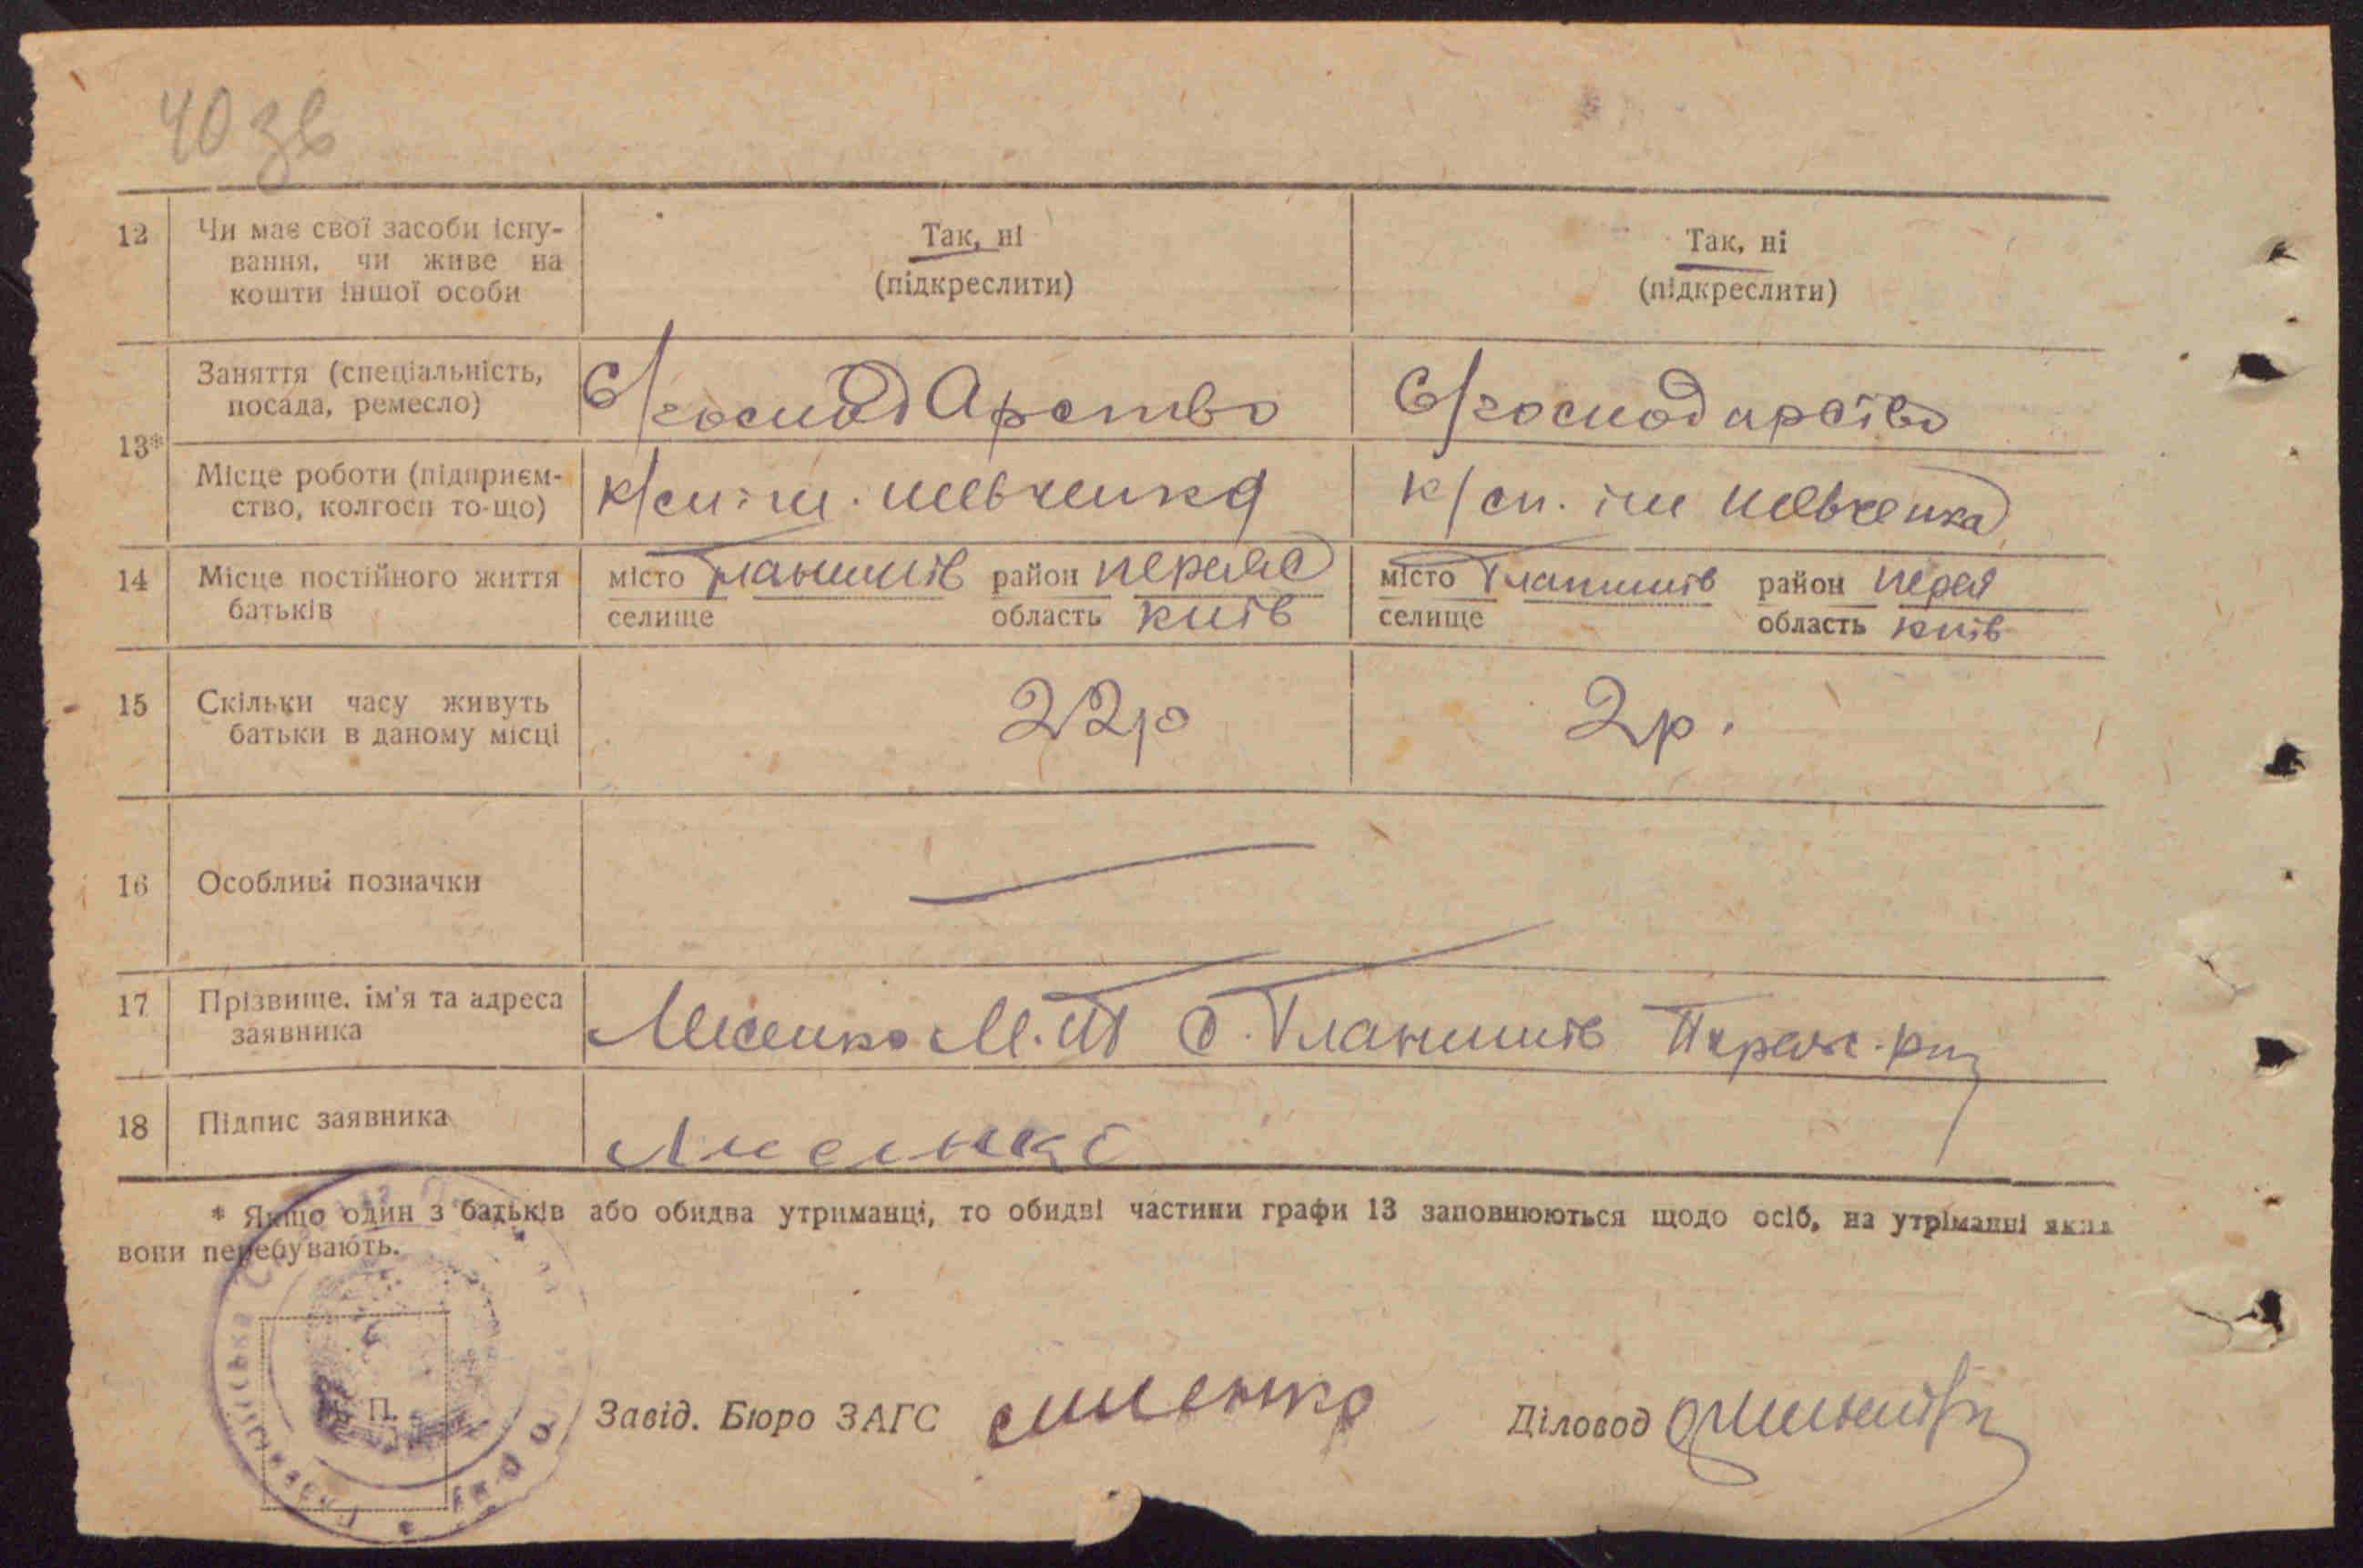 40 зв
12 Чи має свої засоби існу- Так, ні Так, ні
вання, чи живе на (підкреслити) (підкреслити)
кошти іншої особи
Заняття (спеціальність, С/господарство С/господарство
посада, ремесло)
13*
Місце роботи (підприєм- к/сп. ім. Шевченка к/сп. ім Шевченка
ство, колгосп то-що)
14 Місце постійного життя місто Гланишів район Переяс місто Гланишів район Перея
батьків селище область Київ селище область Київ
15 Скільки часу живуть 22р 2р.
батьки в даному місці
16 Особливі позначки
17 Прізвище, ім'я та адреса Лисенко М. П с. Гланишів Переяс. р-н
заявника
18 Підпис заявника Лисенко
* Якщо один з батьків або обидва утриманці, то обидві частини графи 13 заповнюються щодо осіб, на утріманні яких
вони перебувають.
П.
Завід. Бюро ЗАГС Діловод